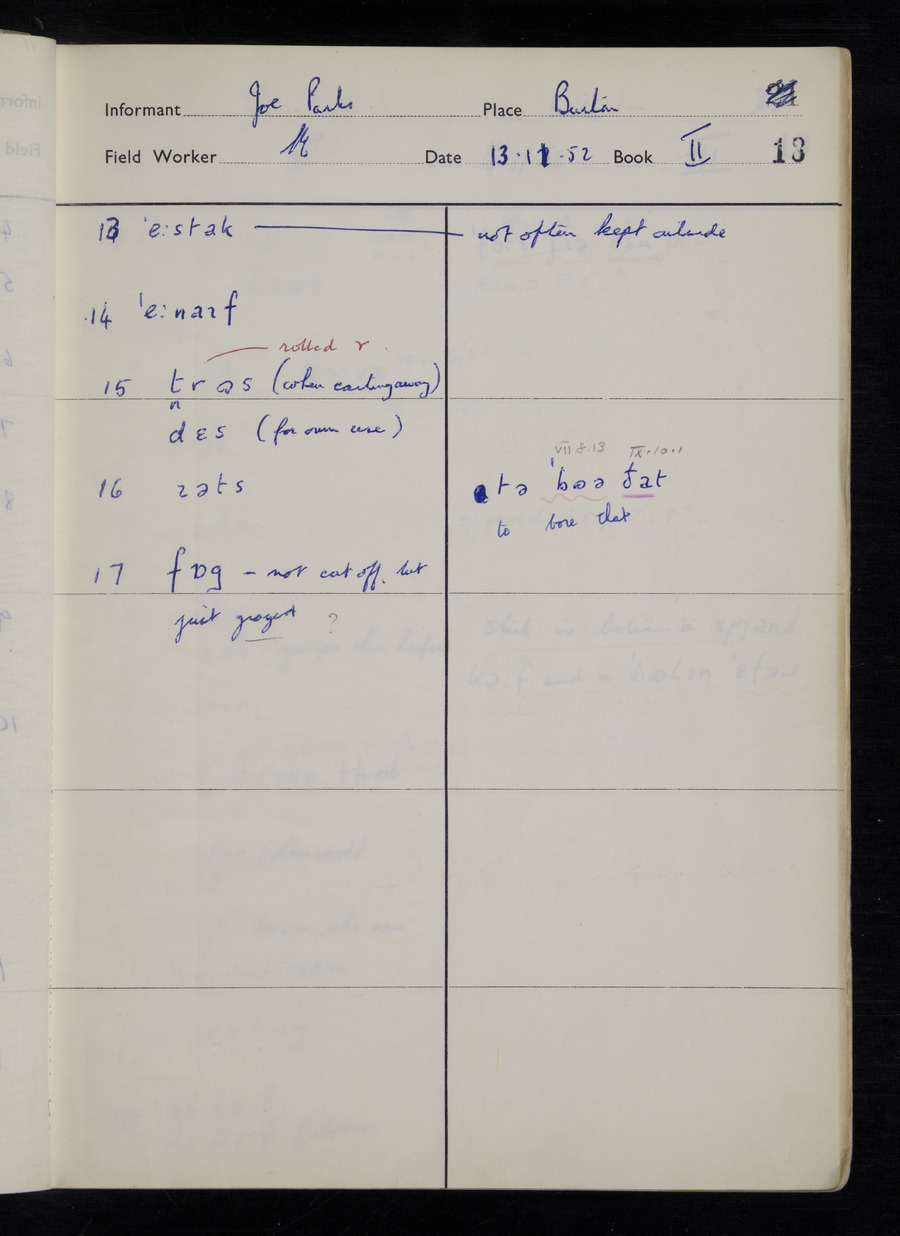 Informant Joe Parks Place Burton
Field Worker Date 13.11.52 Book II 13
13 ˈe:stak — not often kept outside
14 ˈe:naɪf
rolled r
15 trɒs (when carting away)
n
dɛs (for own use)
VII 8.13 IX.10.1
16 ɹəts
tə ˈbɒə ðat
to bore that
17 fɒg – not cut off, but
just grazed ?